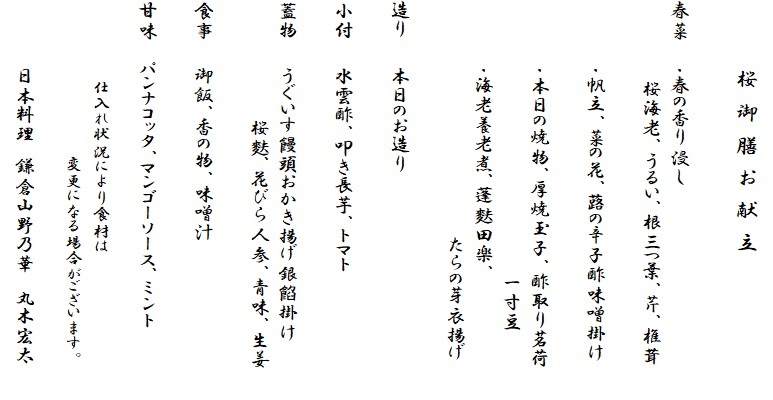 桜御膳お献立
春菜 ・春の香り浸し
桜海老、うるい、根三つ葉、芹、椎茸
・帆立、菜の花、蕗の辛子酢味噌掛け
・本日の焼物、厚焼玉子、酢取り茗荷
一寸豆
・海老養老煮、蓬麩田楽、
たらの芽衣揚げ
造り 本日のお造り
小付 水雲酢、叩き長芋、トマト
蓋物 うぐいす饅頭おかき揚げ銀餡掛け
桜麩、花びら人参、青味、生姜
食事 御飯、香の物、味噌汁
甘味 パンナコッタ、マンゴーソース、ミント
仕入れ状況により食材は
変更になる場合がございます。
日本料理 鎌倉山野乃華 丸木宏太